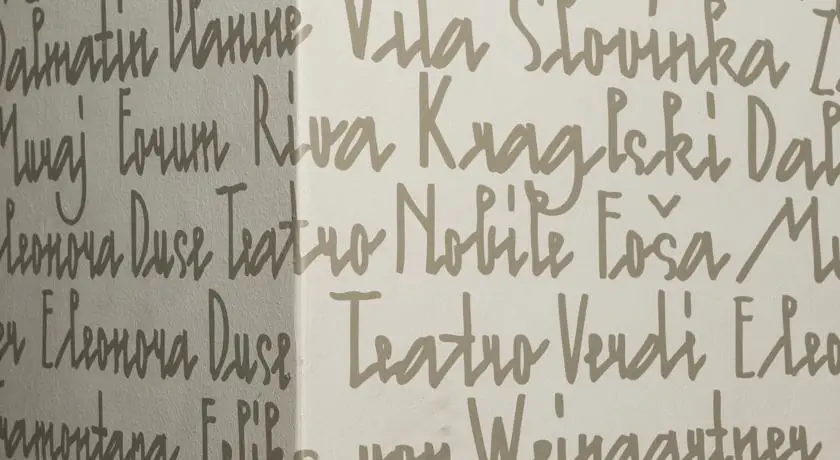 Dalmatin Planine Vila Slovinka
Muraj Forum Riva Kraglski Dal
Eleonora Duse Teatro Nobile Foša Mu
er Eleonora Duse Teatro Verdi Eleo
Tramontana Feliks von Weingartner